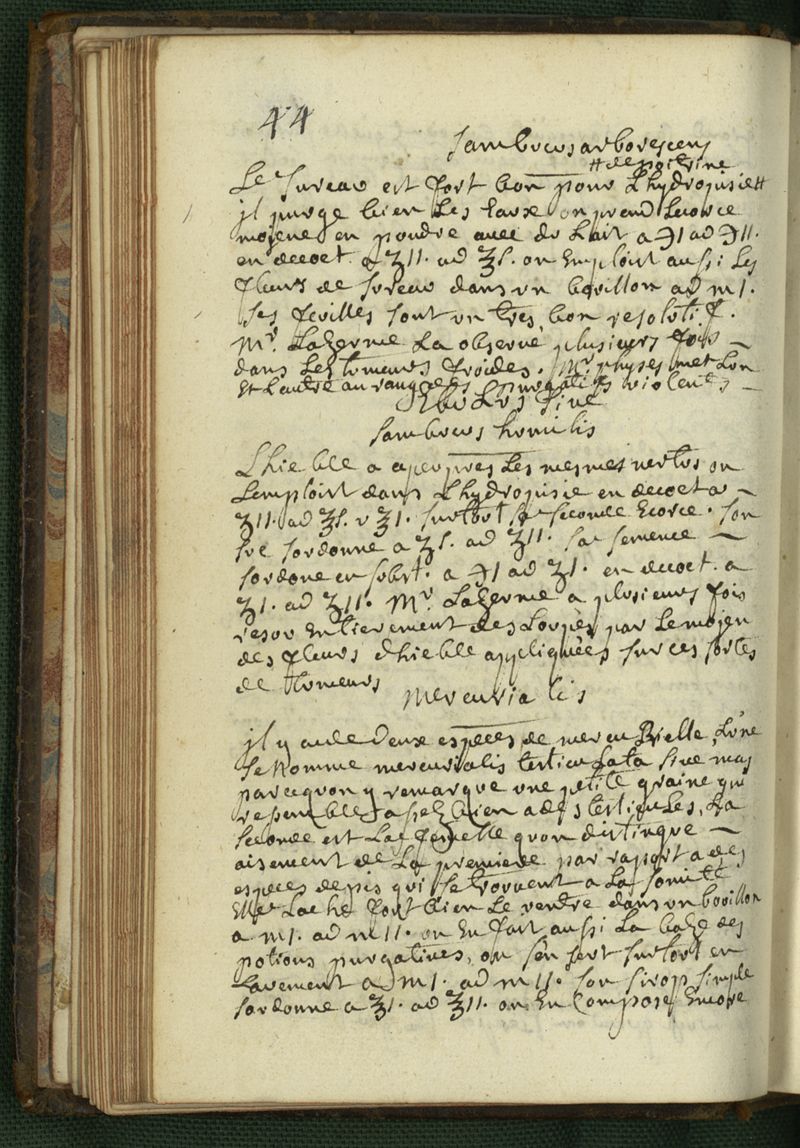 44
Sambucus arborescens
# de poitrine
Le sureau est fort bon pour Lhydropisie #
jl purge bien Les Eaux on prend Lecorce
moiene en poudre avec du Lait a ℈1 ad ℈11.
en decoct. a ʒ11. ad ℥s. on Emploit aussi Les
fleurs de sureau dans un bouillon ad m1.
Ses feuilles sont un tres bon resolutif.
Mr. Lazerme La observé plusieurs fois –
dans Les tumeurs froides. Mr. met Lun
Et Lautre au rang des purgatifs violents –
Ebulus sive
Sambucus humilis
Lhieble a aper pres Les mesmes vertus on
Lemploit dans Lhydropisie en decoct a –
ʒ11. ad ℥s. v ℥1. surtout sa seconde Ecorce. son
suc sordonne a ℥s. ad ℥11. sa semence –
sordone en subst. a ℈1 ad ʒ1. en decoct. a
ʒ1. ad ʒ11. Mr. Lazerme a plusieurs fois
resou Entierement des Loupes par Le moien
des fleurs dhieble appliquées sur ces sortes
de tumeurs
Mercurialis
jl y a de deux especes de mercurielle, Lune
se nomme mercurialis testiculata sive mas
parcequon y remarque une petite graine qui
ressemble assez bien a des testicules, La
seconde est La femelle quon distingue –
aisement de La premiere par raport a des
especes depis qui se trouvent a La somité
Elle Lache fort bien Le ventre dans un bouillon
a m1. ad m11. on En fait aussi La baze des
potions purgatives, on sen sert surtout en
Lavement a m1. ad m11. son sirop simple
sordonne a ℥1. ad ℥11. on En Compose Encore